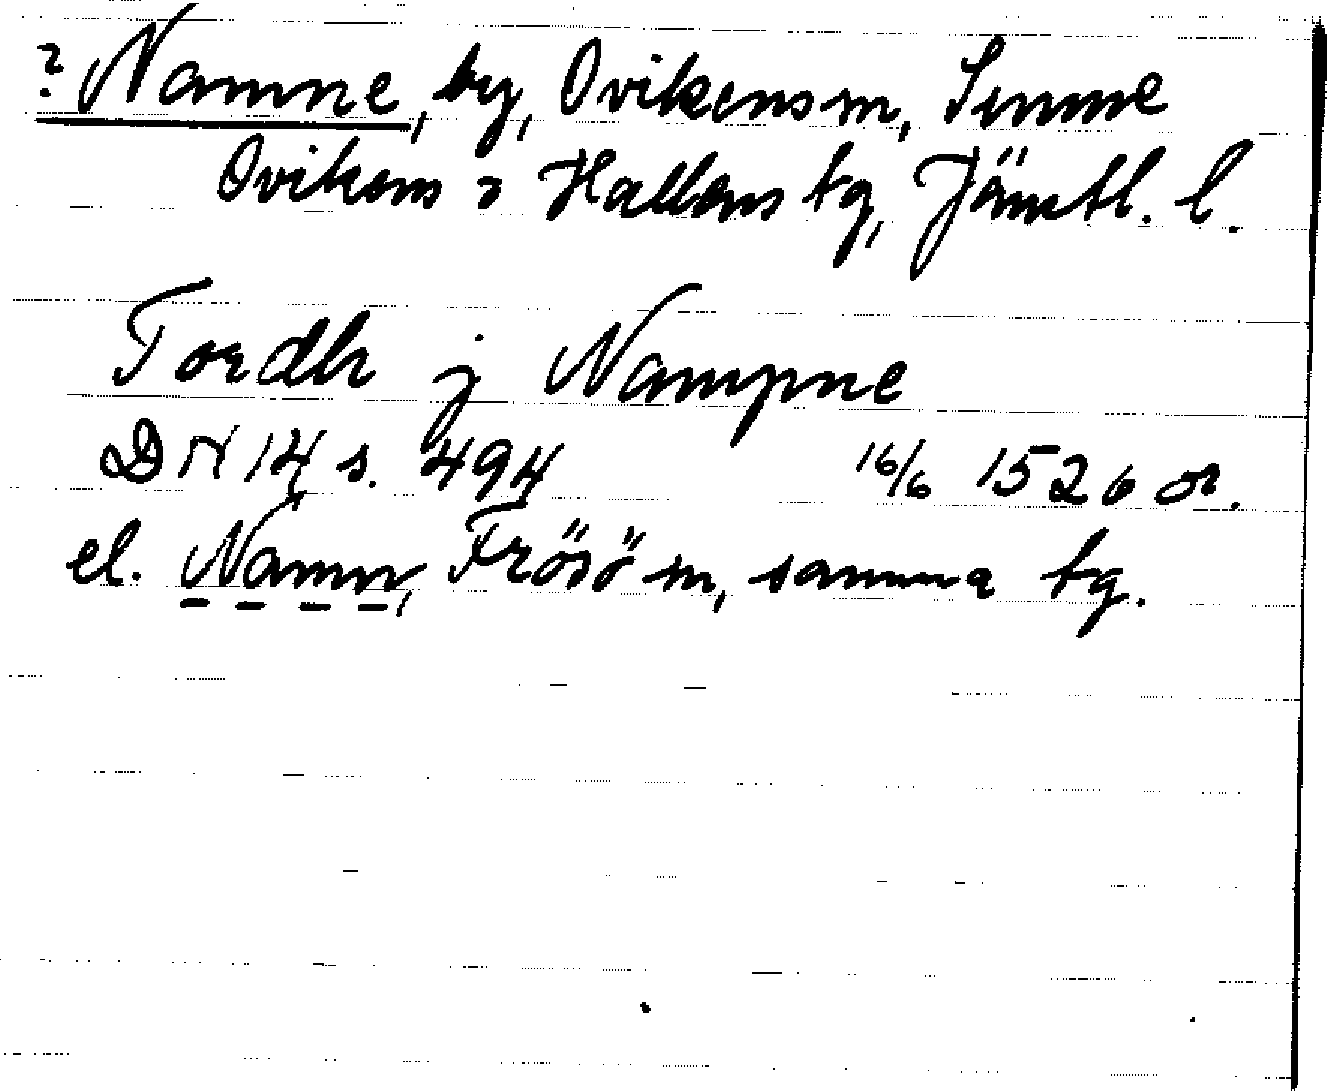 ? Namne, by, Ovikens sn, Sunne
Ovikens o Hallens tg, Jämtl. l.
Tordh j Nampne
DN 14 s. 494 16/6 1526 or.
el. Namn, Frösö sn, samma tg.